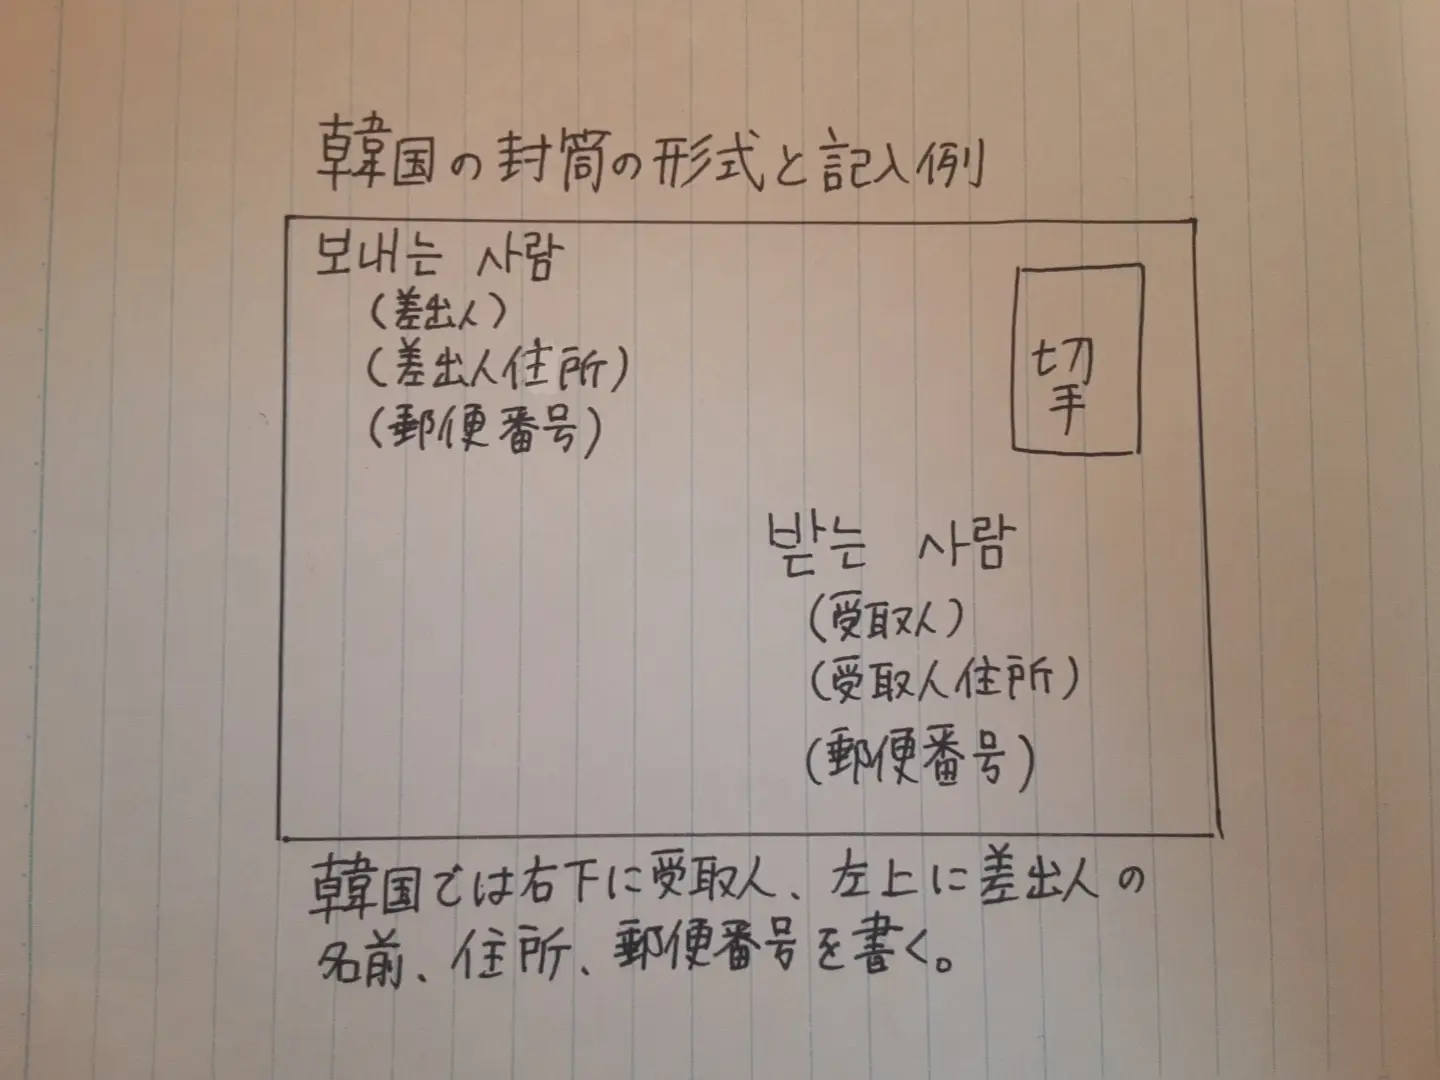 韓国の封筒の形式と記入例
보내는 사람
(差出人)
(差出人住所)
(郵便番号)
切
手
받는 사람
(受取人)
(受取人住所)
(郵便番号)
韓国では右下に受取人、左上に差出人の
名前、住所、郵便番号を書く。